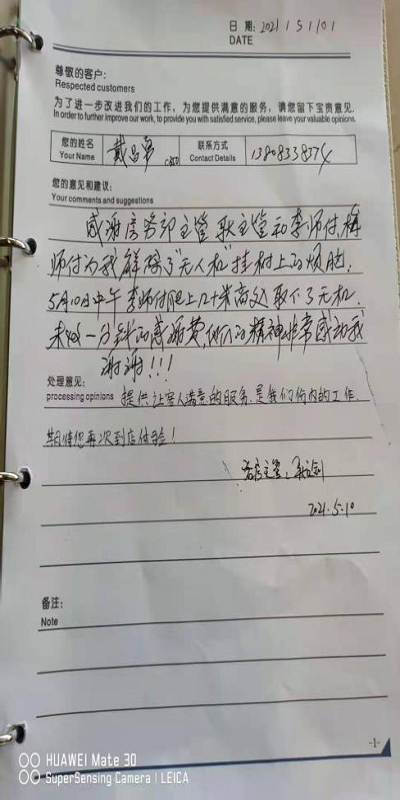 日 期: 2021 1 5 1 10 1
DATE
尊敬的客户:
Respected customers
为了进一步改进我们的工作，为您提供满意的服务，请您留下宝贵意见.
In order to further improve our work, to provide you with satisfied service, please leave your valuable opinions.
您的姓名 联系方式
Your Name Contact Details
您的意见和建议:
Your comments and suggestions
感谢房务部主管耿主管和李师付,
师付为我解除了"无人机"挂树上的烦恼.
5月10日中午李师付爬上几十米高处取下了无机.
未收一分钱的感谢费,他们的精神非常感动我
谢谢!!!
处理意见:
processing opinions 提供让客人满意的服务.是我们份内的工作.
期待您再次到店体验!
客房主管:
2021.5.10
备注:
Note
-1-
HUAWEI Mate 30
SuperSensing Camera | LEICA